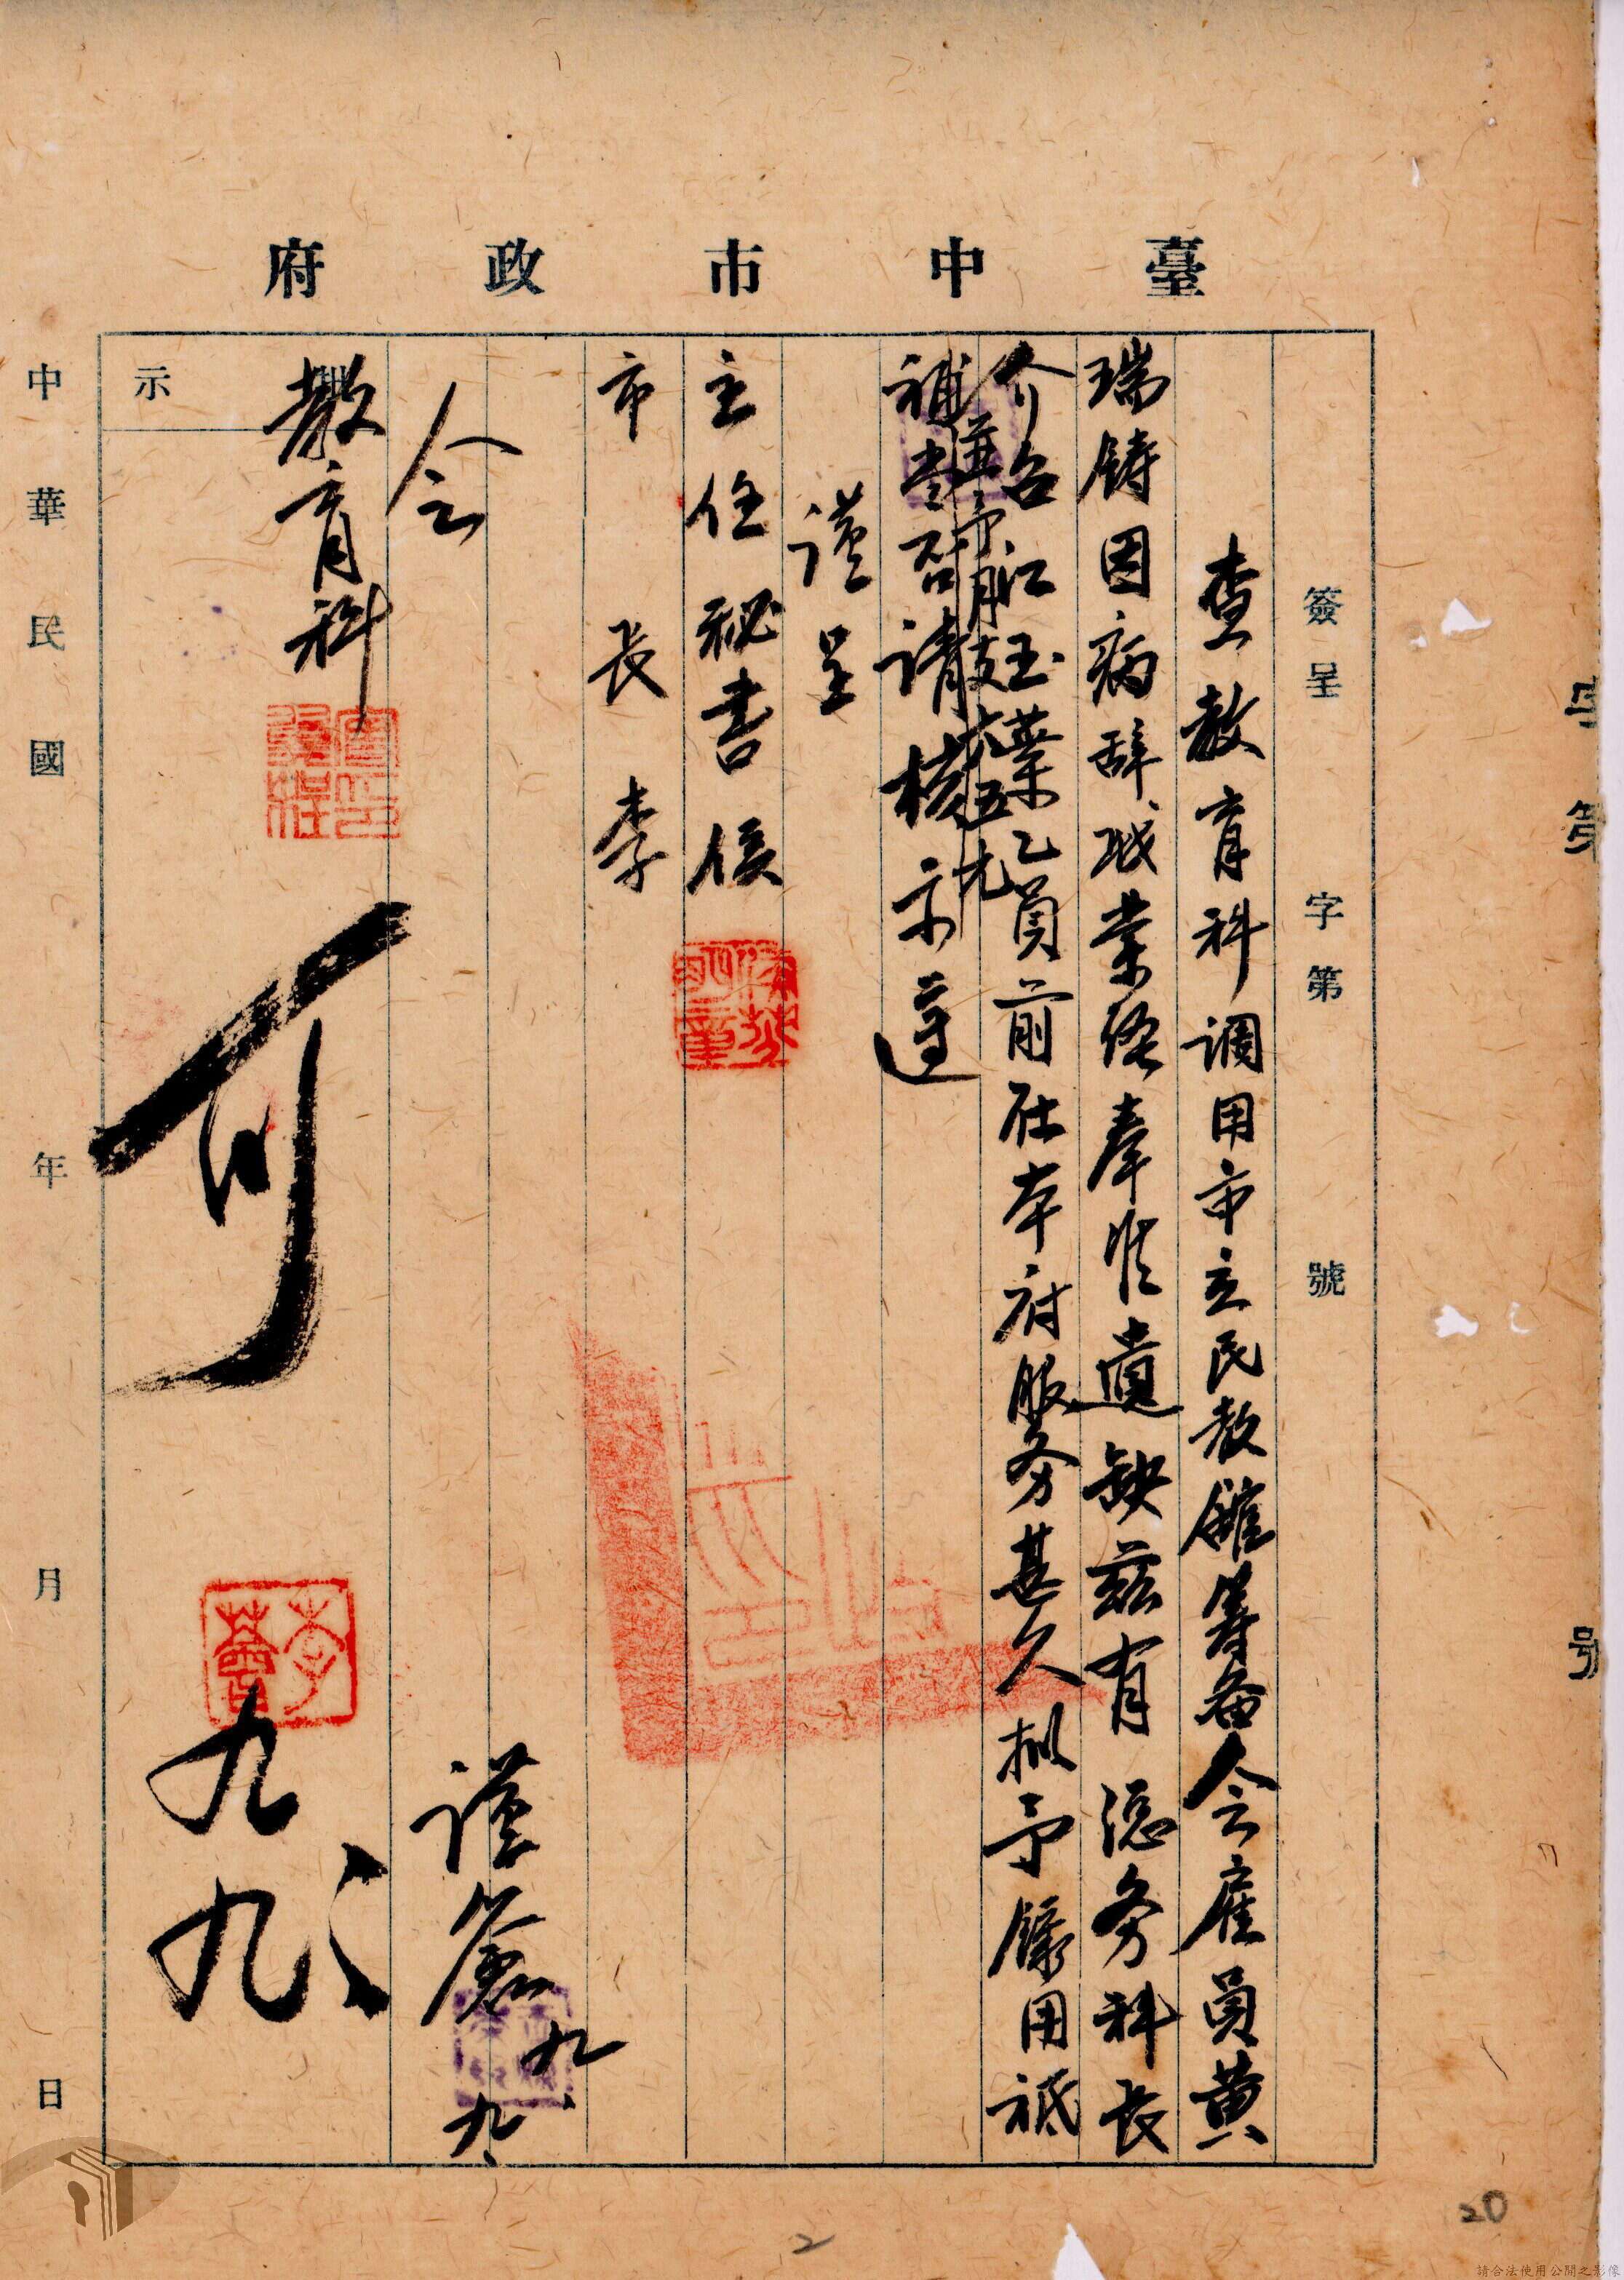 臺中市政府
簽呈 字第 號
查教育科調用市立民教館籌备會雇員黄
瑞鑄因病辞職業經奉准遺缺茲有總务科長
介召江玉葉乙員前在本府服务甚久拟予錄用祗
並予月支六五元
補当否请核示遵
謹呈
主任秘書侯
市長李
謹簽 九、九、
会
教育科
示
可
李薈
九、九、
中華民國 年 月 日
字第 號
20
2
請合法使用公開之影像